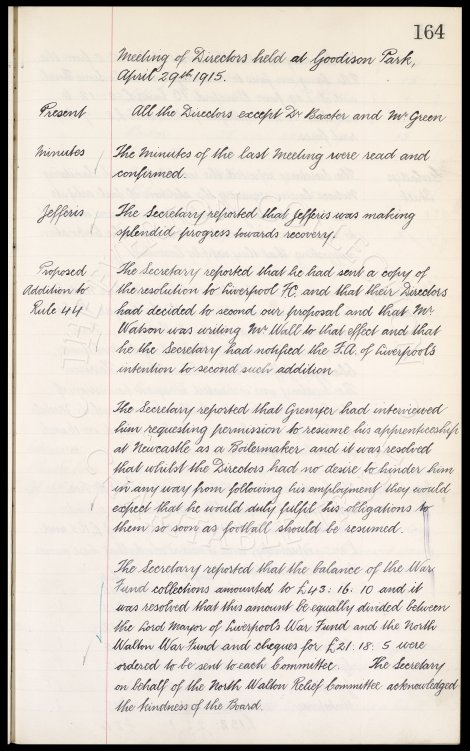 164
Meeting of Directors held at Goodison Park,
April 29th 1915.
Present All the Directors except Dr Baxter and Mr Green
Minutes The Minutes of the last Meeting were read and
confirmed.
Jefferis The Secretary reported that Jefferis was making
splendid progress towards recovery.
Proposed The Secretary reported that he had sent a copy of
Addition to the resolution to Liverpool F.C. and that their Directors
Rule 44 had decided to second our proposal and that Mr
Watson was writing Mr Wall to that effect and that
he the Secretary had notified the F.A. of Liverpool's
intention to second such addition
The Secretary reported that Grenyer had interviewed
him requesting permission to resume his apprenticeship
at Newcastle as a Boilermaker and it was resolved
that whilst the Directors had no desire to hinder him
in any way from following his employment they would
expect that he would duly fulfil his obligations to
them so soon as football should be resumed.
The Secretary reported that the balance of the War
Fund collections amounted to £43: 16: 10 and it
was resolved that this amount be equally divided between
the Lord Mayor of Liverpool's War Fund and the North
Walton War Fund and cheques for £21: 18: 5 were
ordered to be sent to each Committee The Secretary
on behalf of the North Walton Relief Committee acknowledged
the kindness of the Board.